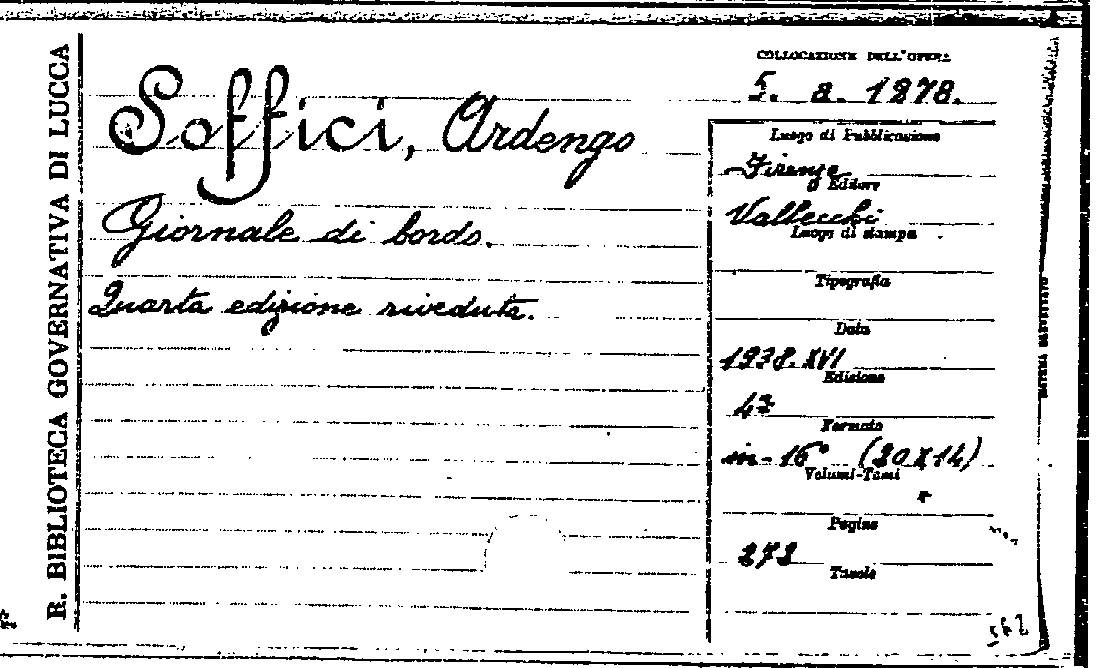 R. BIBLIOTECA GOVERNATIVA DI LUCCA
COLLOCAZIONE DELL'OPERA
5. a. 1278.
Soffici, Ardengo
Giornale di bordo.
Quarta edizione riveduta.
Luogo di Pubblicazione
Firenze
Editore
Vallecchi
Luogo di stampa
Tipografia
Data
1938.XVI
Edizione
4ª
Formato
in-16° (20x14)
Volumi-Tomi
Pagine
272
Tavole